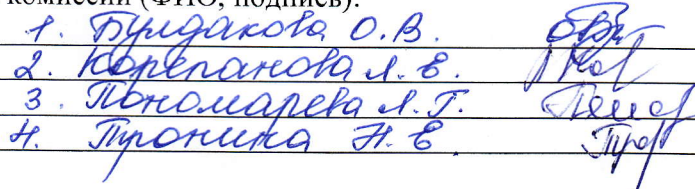 комиссии (ФИО, подпись):
1. Булдакова О. В.
2. Корепанова Л. Е.
3. Пономарева Л. Г.
4. Пронина Н. Е.